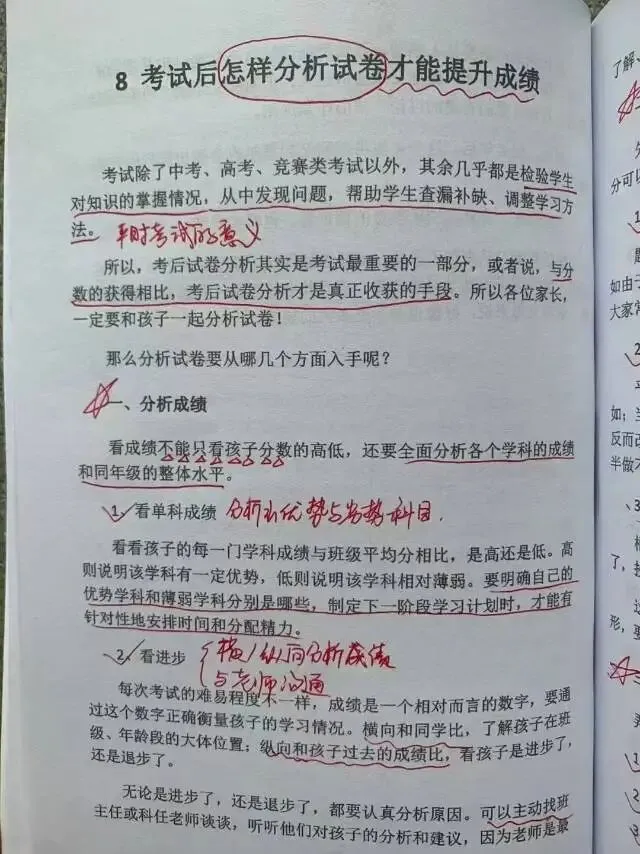 8 考试后怎样分析试卷才能提升成绩
考试除了中考、高考、竞赛类考试以外，其余几乎都是检验学生
对知识的掌握情况，从中发现问题，帮助学生查漏补缺、调整学习方
法。 平时考试的意义
所以，考后试卷分析其实是考试最重要的一部分，或者说，与分
数的获得相比，考后试卷分析才是真正收获的手段。所以各位家长，
一定要和孩子一起分析试卷！
那么分析试卷要从哪几个方面入手呢？
一、分析成绩
看成绩不能只看孩子分数的高低，还要全面分析各个学科的成绩
和同年级的整体水平。
1. 看单科成绩 分析出优势与劣势科目
看看孩子的每一门学科成绩与班级平均分相比，是高还是低。高
则说明该学科有一定优势，低则说明该学科相对薄弱。要明确自己的
优势学科和薄弱学科分别是哪些，制定下一阶段学习计划时，才能有
针对性地安排时间和分配精力。
2. 看进步 横/纵向分析成绩
与老师沟通
每次考试的难易程度不一样，成绩是一个相对而言的数字，要通
过这个数字正确衡量孩子的学习情况。横向和同学比，了解孩子在班
级、年龄段的大体位置；纵向和孩子过去的成绩比，看孩子是进步了，
还是退步了。
无论是进步了，还是退步了，都要认真分析原因。可以主动找班
主任或科任老师谈谈，听听他们对孩子的分析和建议，因为老师是最
了解、
分可以
如由于
大家常
如：
反而
半做不
了，
形，